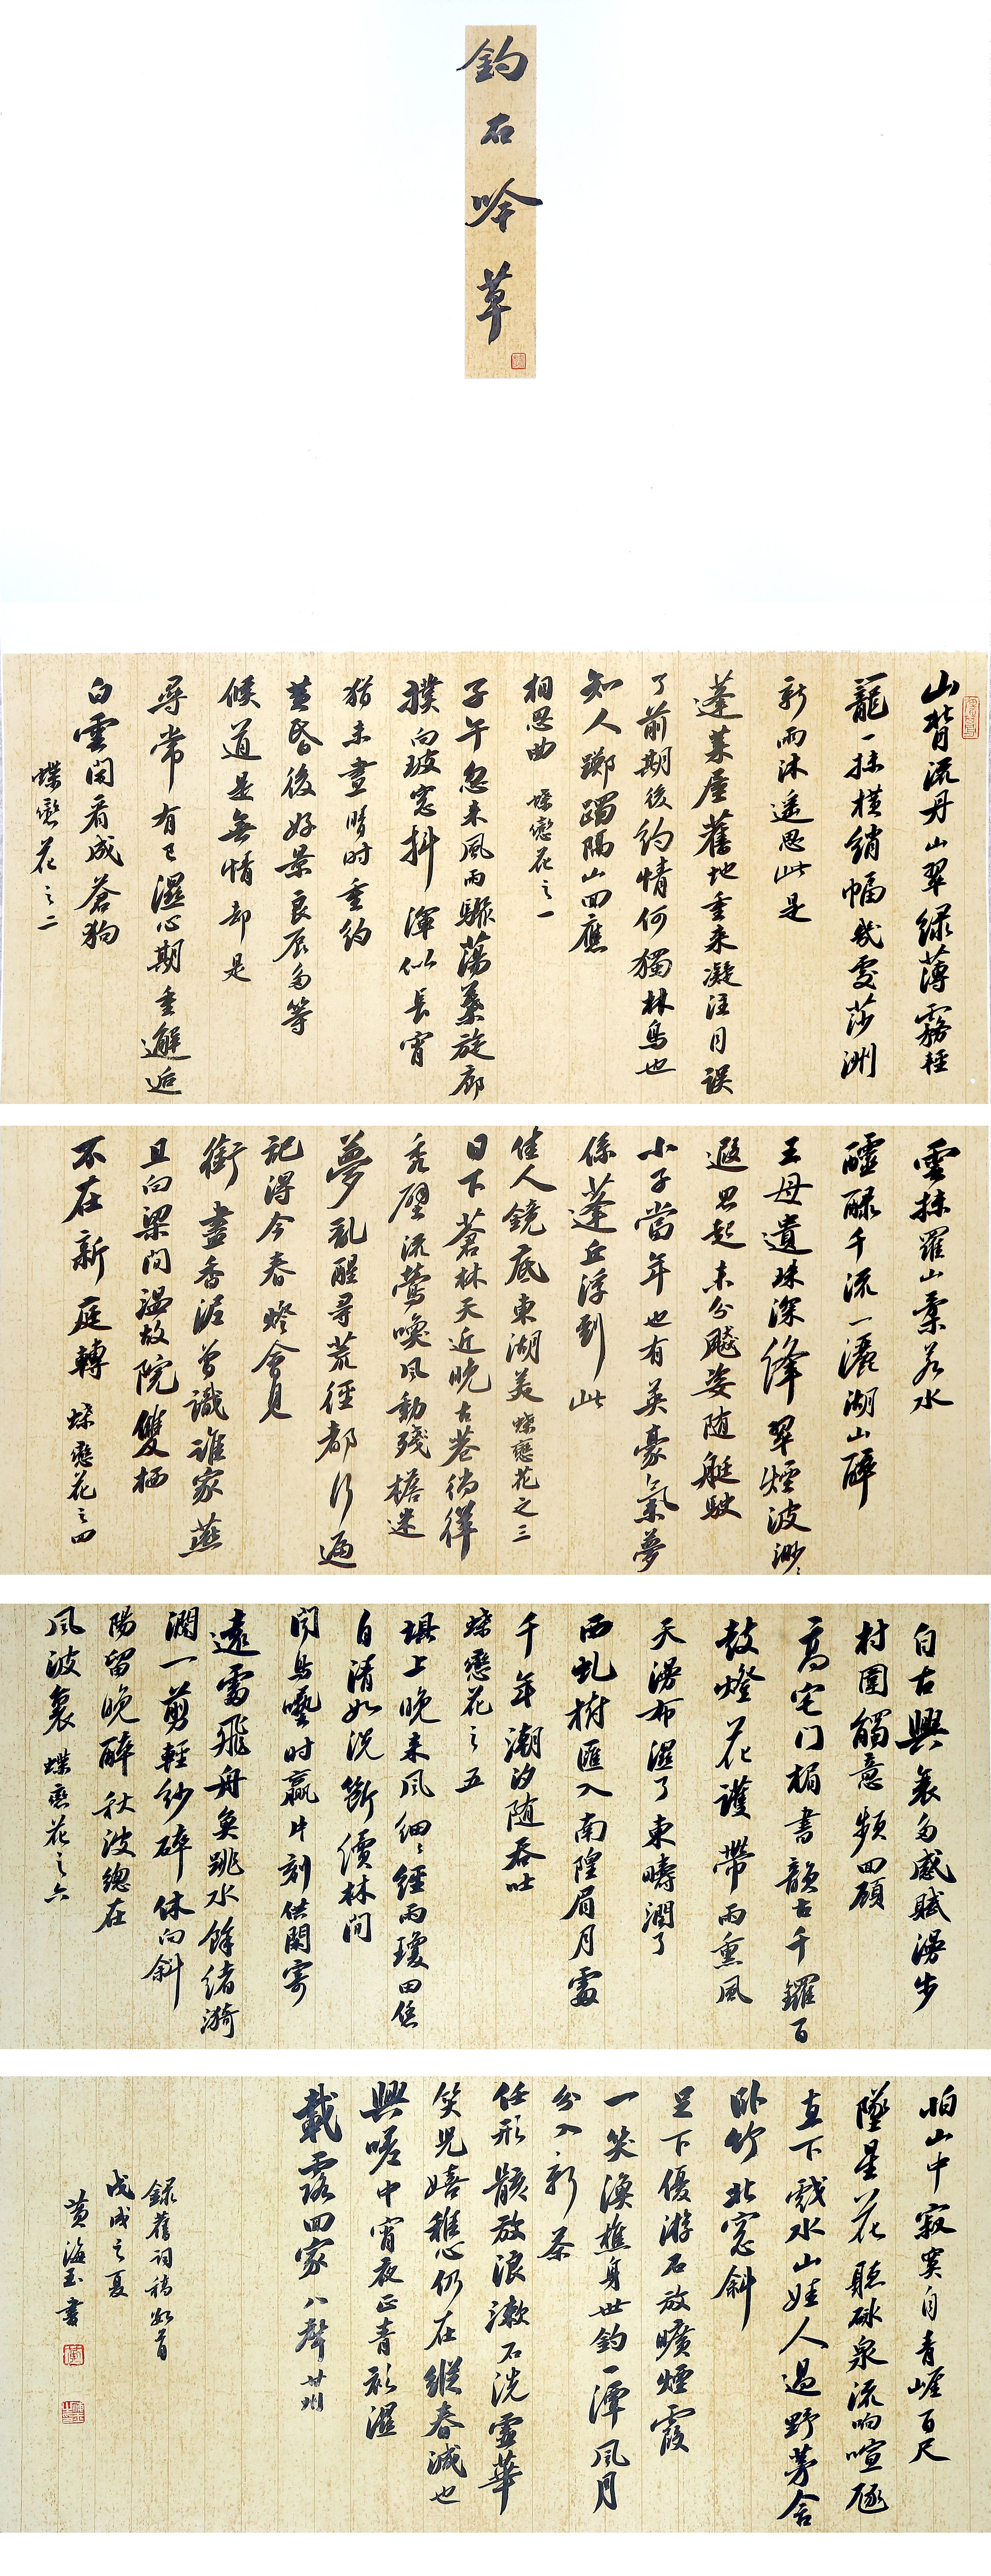 釣石吟草
山背流丹山翠綠薄霧輕
籠一抹橫綃幅幾處莎洲
新雨沐遙思此是
蓬萊屋舊地重來凝注目誤
了前期後約情何獨林鳥也
知人躑躅隔山回應
相思曲 蝶戀花之一
子午忽來風雨驟蕩蕩旋廊
撲向玻窓抖渾似長宵
猶未晝臨时重約
黃昏後好景良辰為等
候道是無情却是
尋常有已濕心期重邂逅
白雲閑看成蒼狗
蝶戀花之二
雲抹羅山棗若水
醽醁千流一灑湖山醉
王母遺珠深絳翠煙波渺
遐思起未分颸姿随艇駛
小子當年也有英豪氣夢
係蓬丘浮到此
佳人鏡底東湖美 蝶戀花之三
日下蒼林天近晚古巷徜徉
禿壁流鶯喚風動殘檐迷
夢亂醒尋荒徑都行遍
記得今春燈會見
銜盡香泥曾識誰家燕
且向梁間温故院雙栖
不在新庭轉 蝶戀花之四
自古興衰多感賦漫步
村圍觸意頻回顧
高宅门楣書韻古千鑼百
鼓燈花護帶雨熏風
天漫布濕了東疇潤了
西虬樹匯入南隍眉月露
千年潮汐随吞吐
蝶戀花之五
堪上晚來风細細經雨瓊田傜
自清如洗斷續林間
聞鳥囈时贏片刻供閑寄
遠雷飛舟魚跳水餘緒漪
瀾一剪輕紗碎休向斜
陽留晚醉秋波總在
風波裏 蝶戀花之六
怕山中寂寞自青崕百尺
墜星花聽砅泉流响喧豗
直下戲水山娃人過野茅舍
卧竹北窓斜
足下優游石放曠煙霞
一笑渔樵身世釣一潭风月
分入新茶
任形骸放浪漱石洗雲華
笑兒嬉稚心仍在縱春減也
興嗟中宵夜正青衫濕
載露回家 八聲甘州
録舊詞稿如首
戊戌之夏
黃海玉書